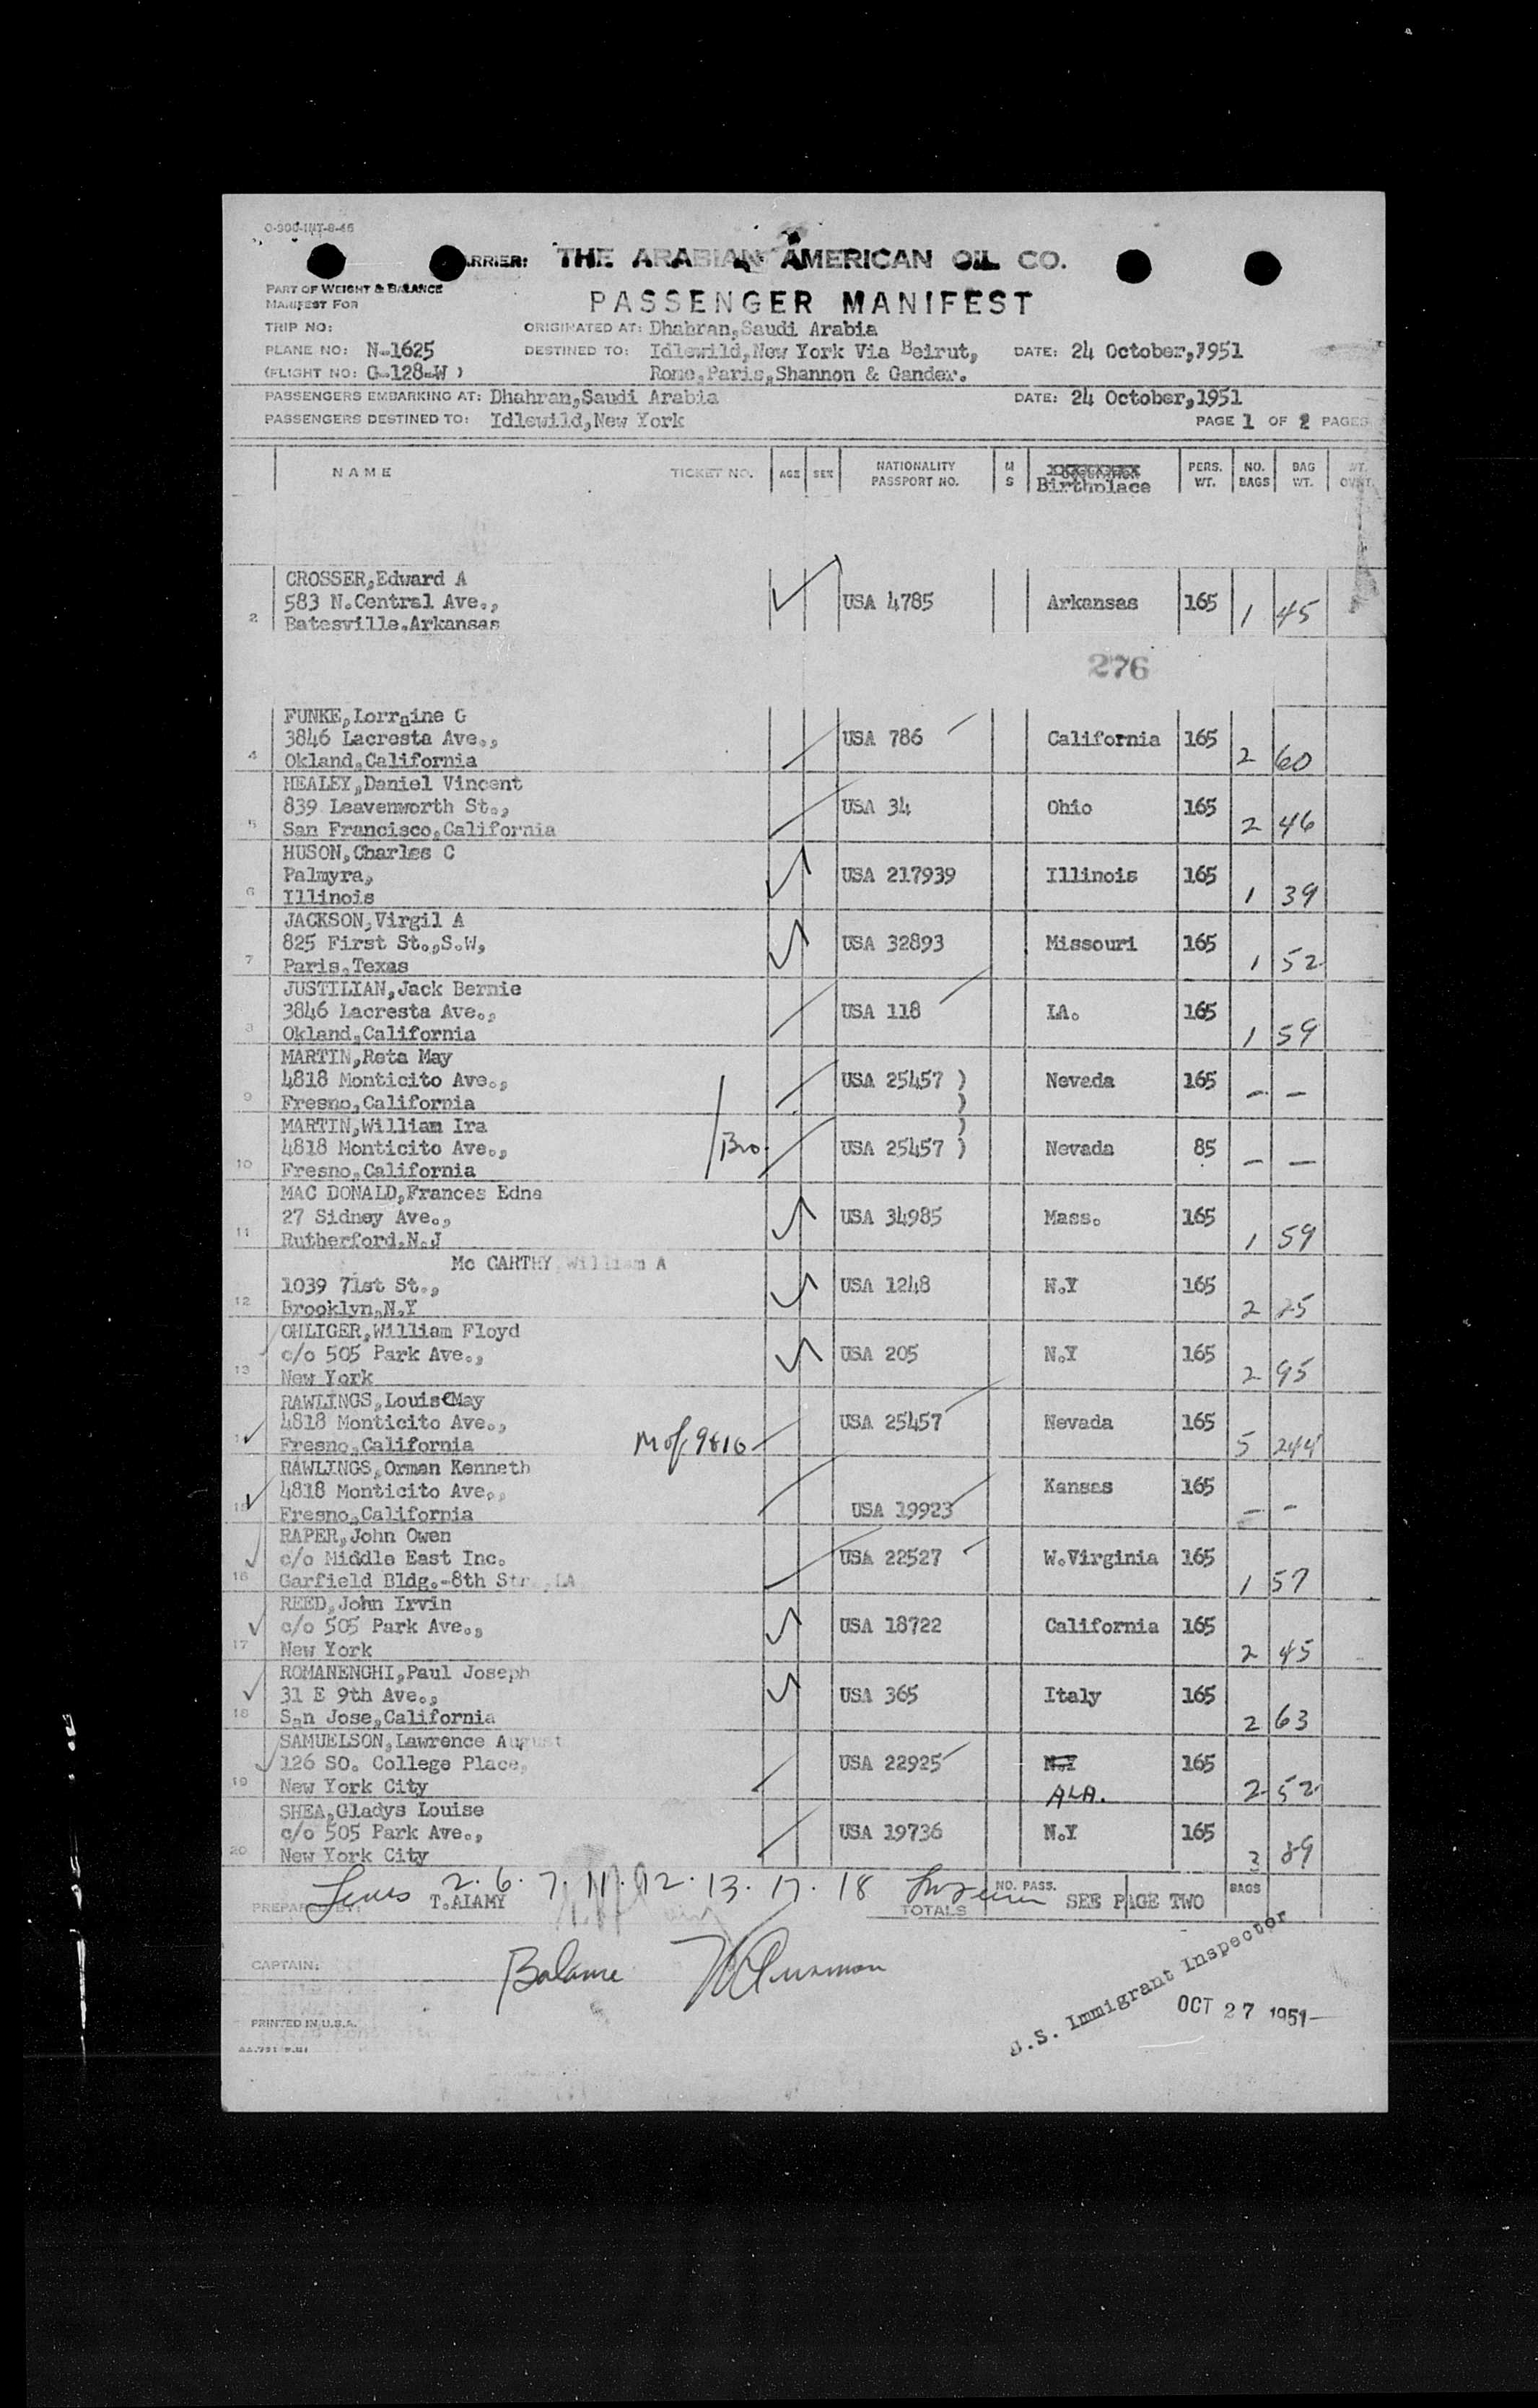 O-300-INT-8-46
CARRIER: THE ARABIAN AMERICAN OIL CO.
PART OF WEIGHT & BALANCE
MANIFEST FOR
PASSENGER MANIFEST
TRIP NO: ORIGINATED AT: Dhahran,Saudi Arabia
PLANE NO: N-1625 DESTINED TO: Idlewild,New York Via Beirut, DATE: 24 October,1951
(FLIGHT NO: G-128-W ) Rome,Paris,Shannon & Gander.
PASSENGERS EMBARKING AT: Dhahran,Saudi Arabia DATE: 24 October,1951
PASSENGERS DESTINED TO: Idlewild,New York PAGE 1 OF 2 PAGES
NAME TICKET NO. AGE SEX NATIONALITY PASSPORT NO. M S Birthplace PERS. WT. NO. BAGS BAG WT. WT. OVWT.
CROSSER,Edward A
583 N.Central Ave., USA 4785 Arkansas 165 1 45
2 Batesville.Arkansas
276
FUNKE,Lorraine G
3846 Lacresta Ave., USA 786 California 165 2 60
4 Okland,California
HEALEY,Daniel Vincent
839 Leavenworth St., USA 34 Ohio 165 2 46
5 San Francisco,California
HUSON,Charles C
Palmyra, USA 217939 Illinois 165 1 39
6 Illinois
JACKSON,Virgil A
825 First St.,S.W, USA 32893 Missouri 165 1 52
7 Paris.Texas
JUSTILIAN,Jack Bernie
3846 Lacresta Ave., USA 118 LA. 165 1 59
8 Okland,California
MARTIN,Reta May
4818 Monticito Ave., USA 25457 ) Nevada 165 - -
9 Fresno,California )
MARTIN,William Ira )
4818 Monticito Ave., Bro. USA 25457 ) Nevada 85 - -
10 Fresno,California
MAC DONALD,Frances Edna
27 Sidney Ave., USA 34985 Mass. 165 1 59
11 Rutherford.N.J
Mc CARTHY,William A
1039 71st St., USA 1248 N.Y 165 2 25
12 Brooklyn.N.Y
OHLIGER,William Floyd
c/o 505 Park Ave., USA 205 N.Y 165 2 95
13 New York
RAWLINGS,Louise May
4818 Monticito Ave., USA 25457 Nevada 165 5 244
14 Fresno,California M of 9&10
RAWLINGS,Orman Kenneth
4818 Monticito Ave., Kansas 165 - -
15 Fresno,California USA 19923
RAPER,John Owen
c/o Middle East Inc. USA 22527 W.Virginia 165 1 57
16 Garfield Bldg.-8th Str. ,LA
REED,John Irvin
c/o 505 Park Ave., USA 18722 California 165 2 45
17 New York
ROMANENGHI,Paul Joseph
31 E 9th Ave., USA 365 Italy 165 2 63
18 San Jose,California
SAMUELSON,Lawrence August
126 SO. College Place, USA 22925 N.Y 165
19 New York City ALA. 2 52
SHEA,Gladys Louise
c/o 505 Park Ave., USA 19736 N.Y 165 3 89
20 New York City
2. 6. 7. 11. 12. 13. 17. 18
PREPARED BY: T.ALAMY TOTALS NO. PASS. SEE PAGE TWO BAGS
CAPTAIN: Balance
U.S. Immigrant Inspector
OCT 27 1951
PRINTED IN U.S.A.